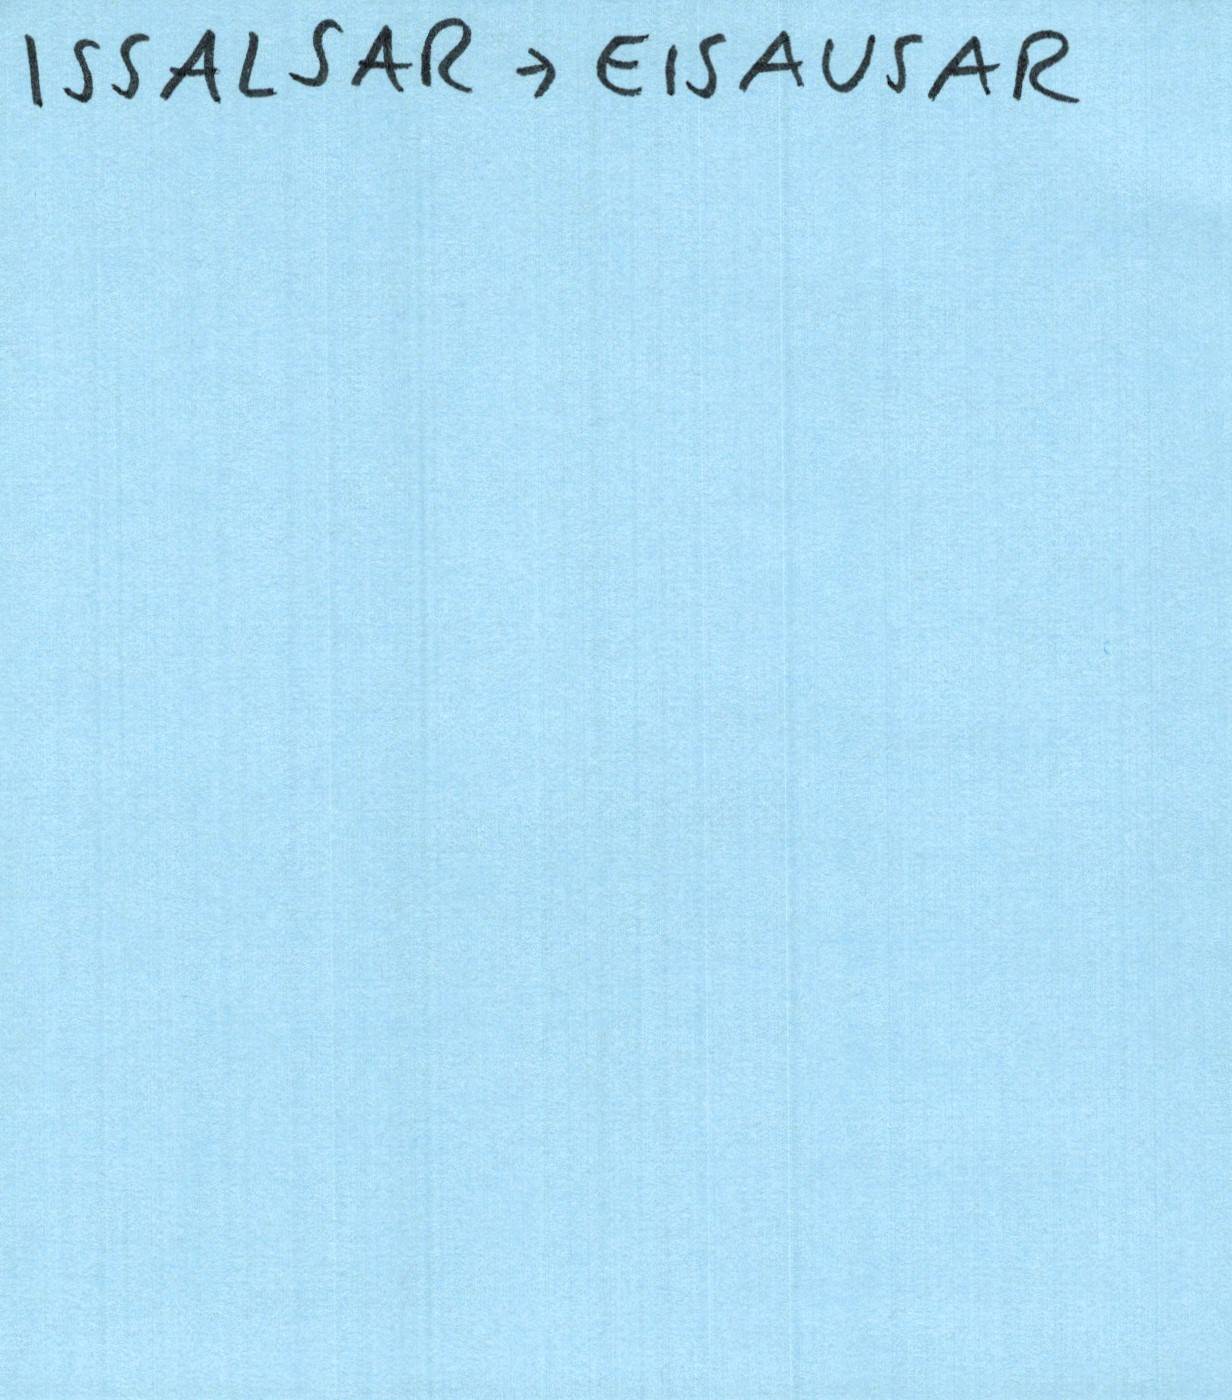 ISSALSAR → EISAUSAR